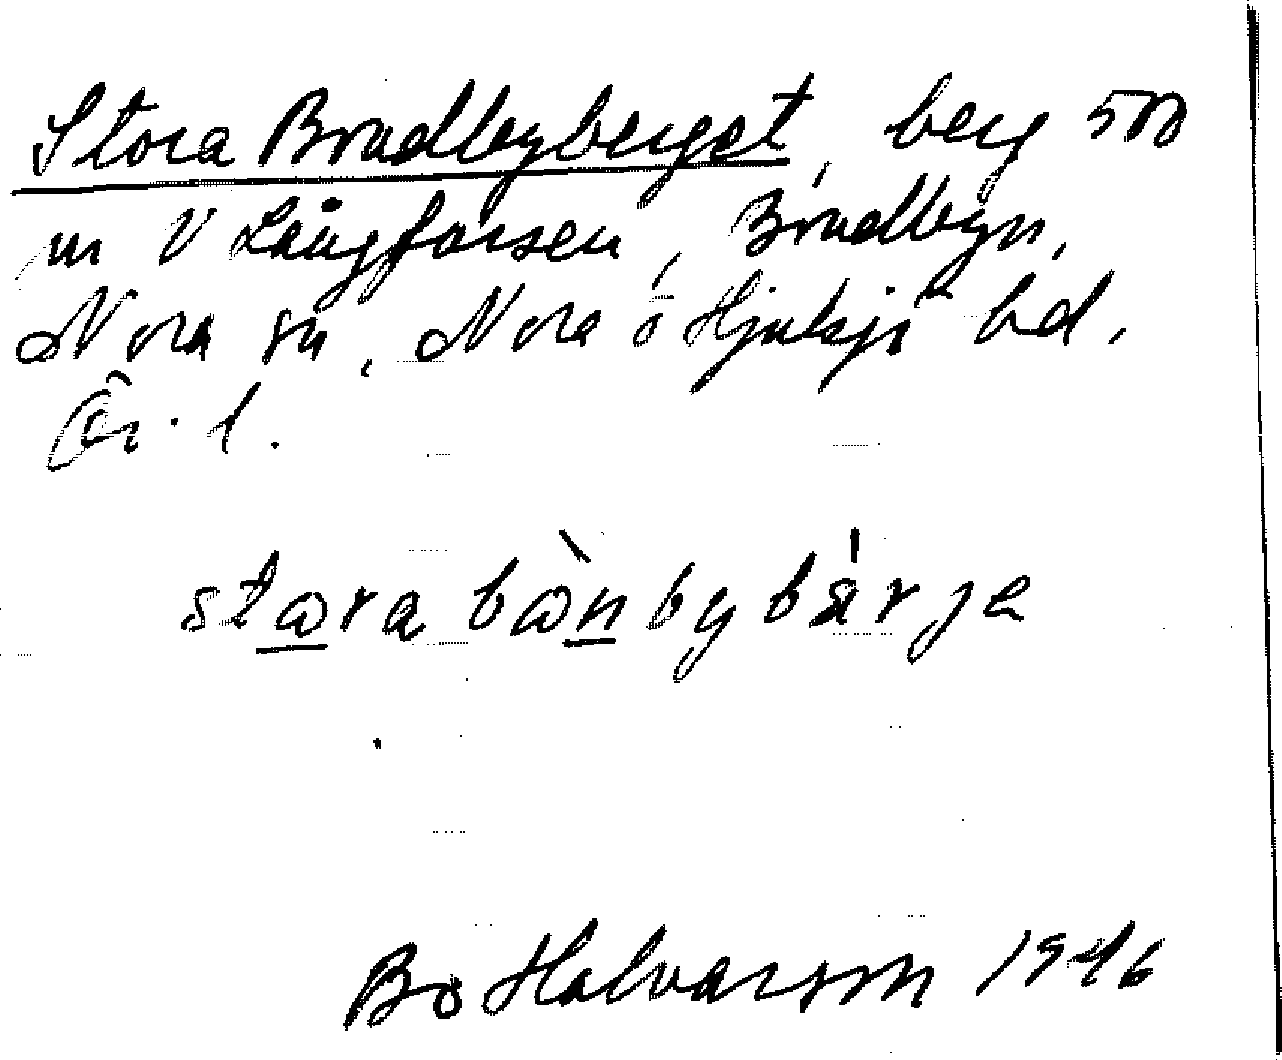 Stora Brudbyberget, berg 500
m V Långforsen, Brudbyn,
Nora sn, Nora o Hjulsjö bd.
Ör. l.
stωra bωnbybärje
Bo Halvarson 1946